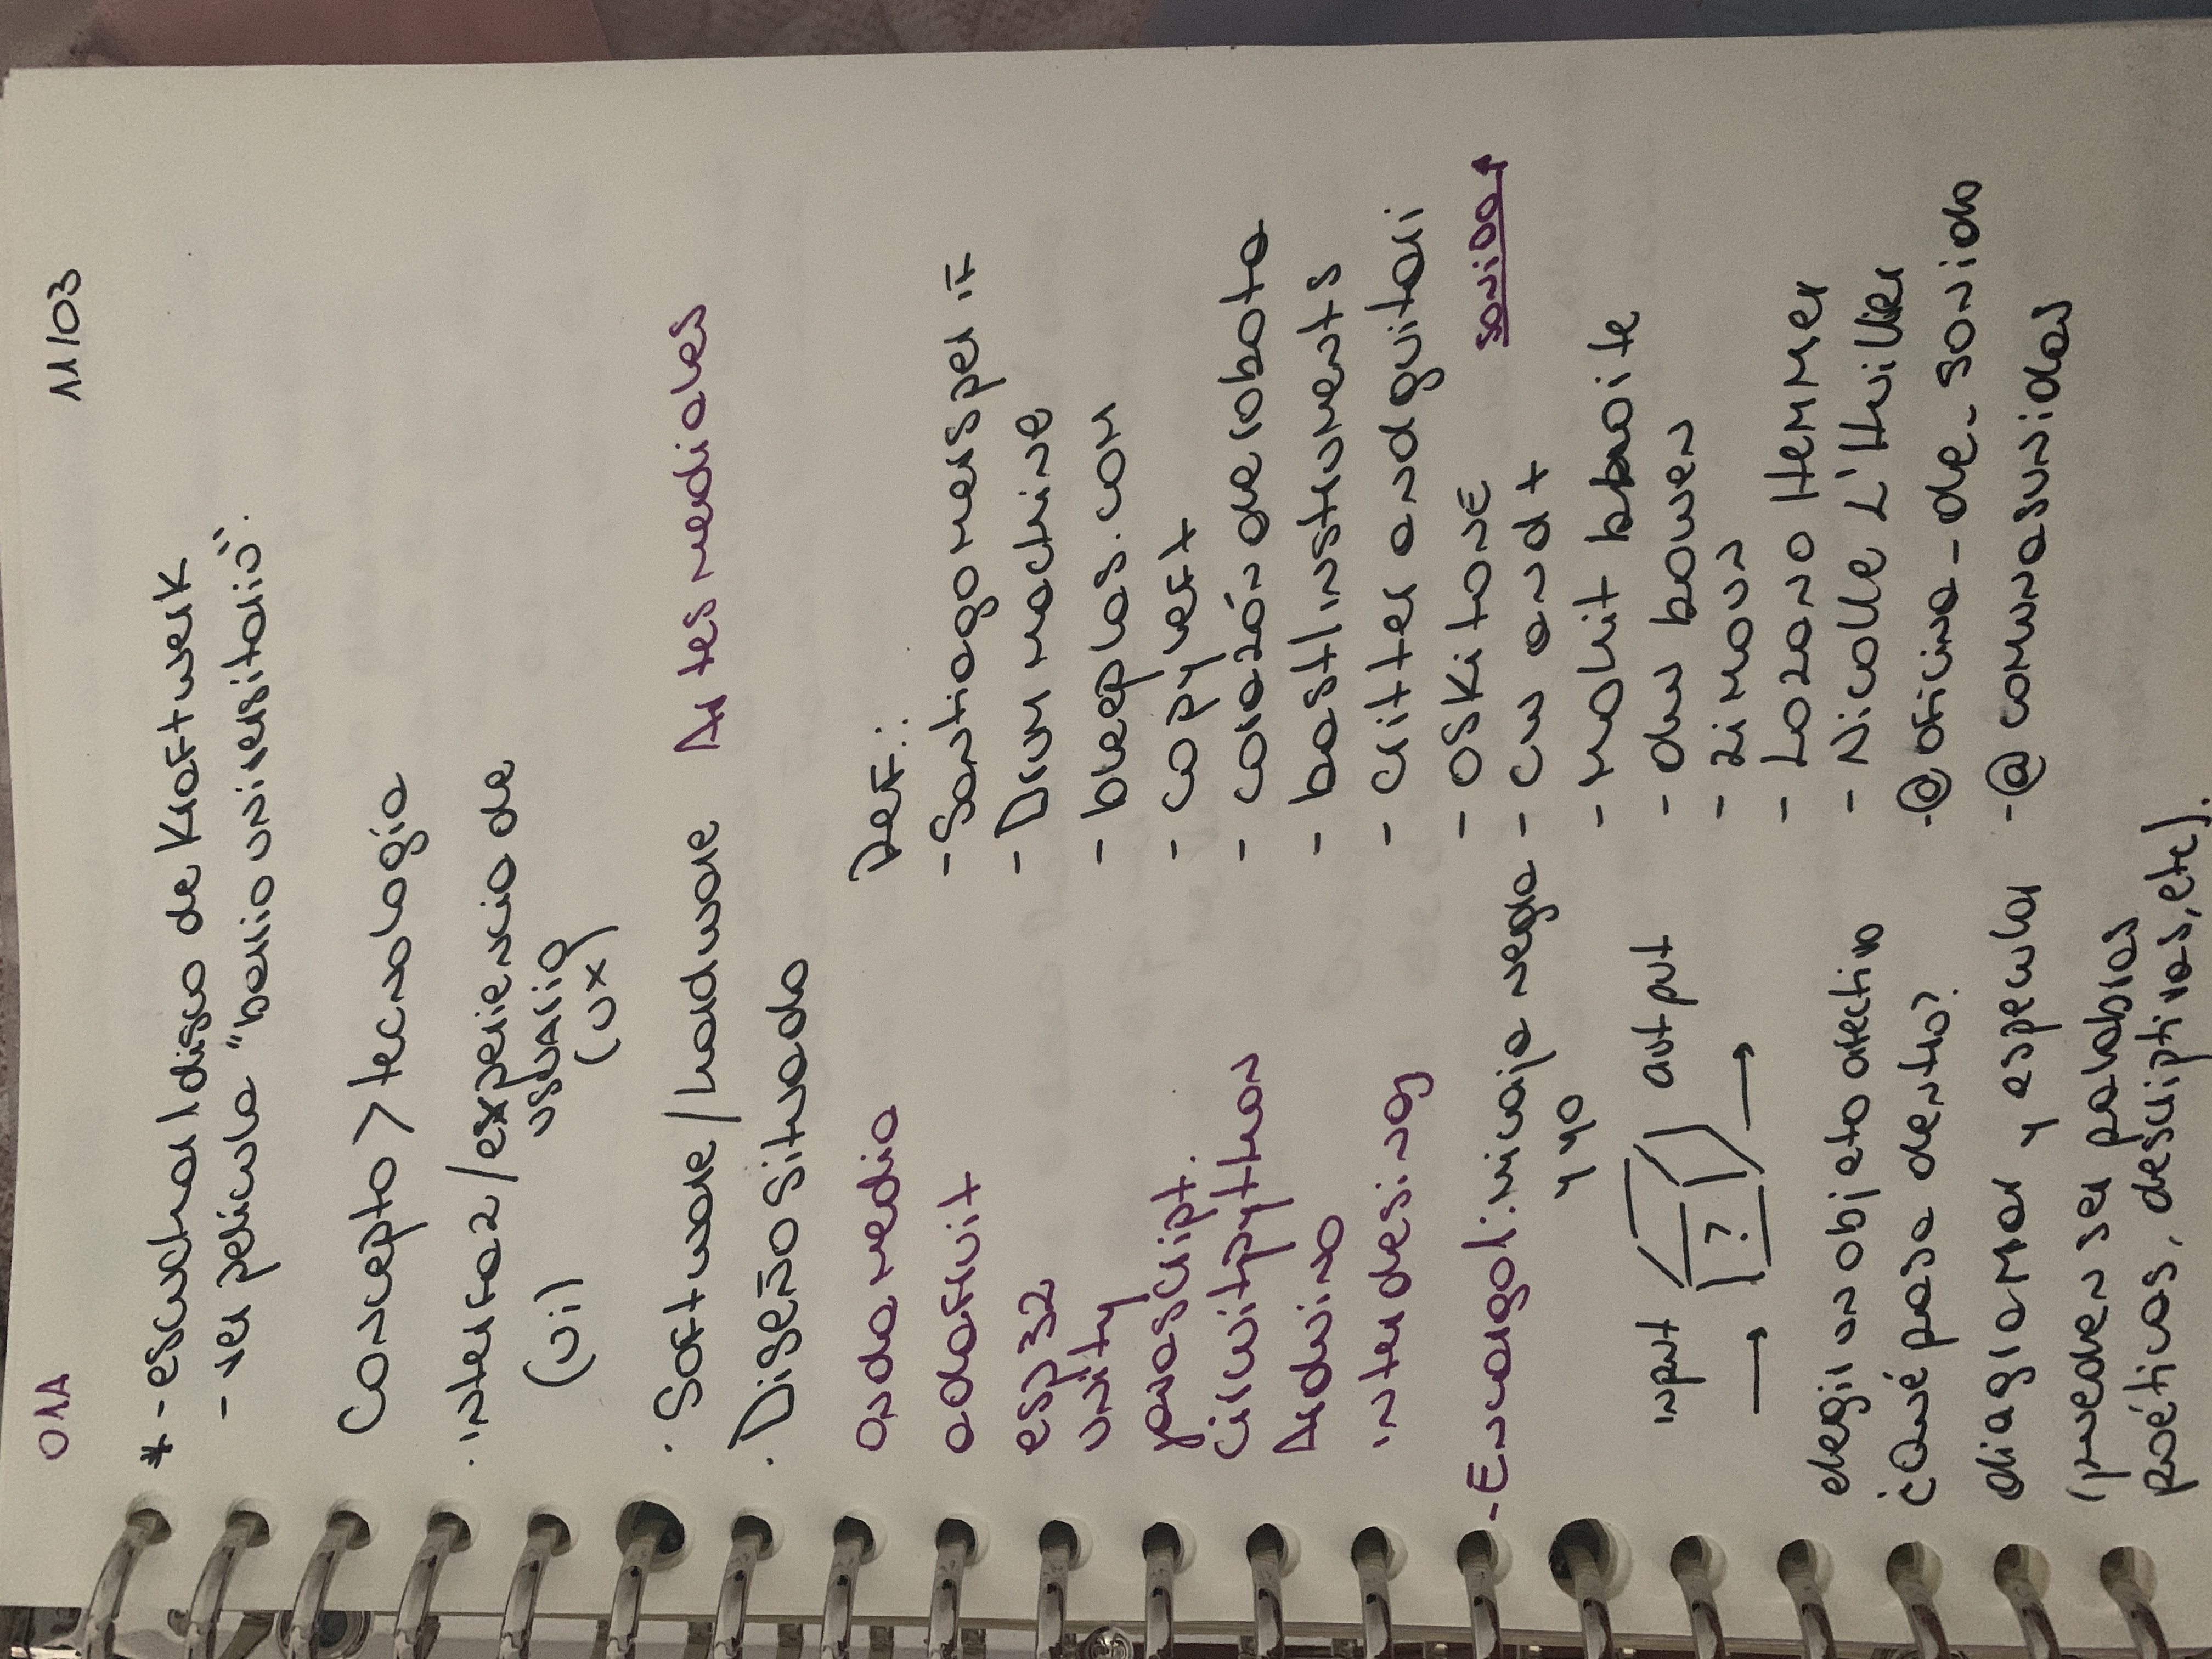 01A
11/03
* - escuchar 1 disco de Kraftwerk
- ver película "barrio universitario".
Concepto > tecnología
· interfaz / experiencia de
usuario
(Ui)
(UX)
· Software / hardware Artes mediales
· Diseño situado
Ondamedia
adafruit
esp32
unity
javascript.
circuitpython
Arduino
interdesinoj
- Encargo1: mi caja negra
y yo
input
output
?
elegir un objeto afectivo
¿Qué pasa dentro?
diagramar y especular
(pueden ser palabras
poéticas, descriptivas, etc).
Ref.:
- Santiago mersper IF
- Drum machine
- bleeplas.com
- copyleft
- corazón de robota
- bastl instruments
- critter and guitari
- OSKitONE
sonidos
- CW and t
- Mohit bhoite
- dw bowen
- zimoun
- Lozano Hemmer
- Nicolle L'Huillier
- @oficina_de_sonido
- @comunasunidas